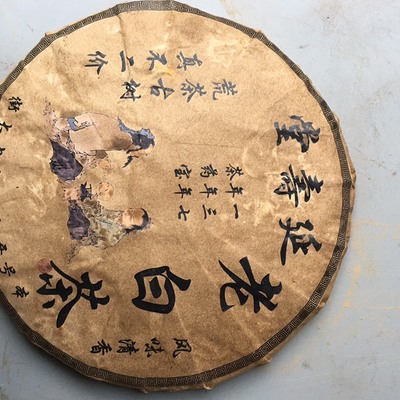 延壽堂
老白茶
風味清香
一年茶
三年药
七年宝
荒茶古树
真不二价